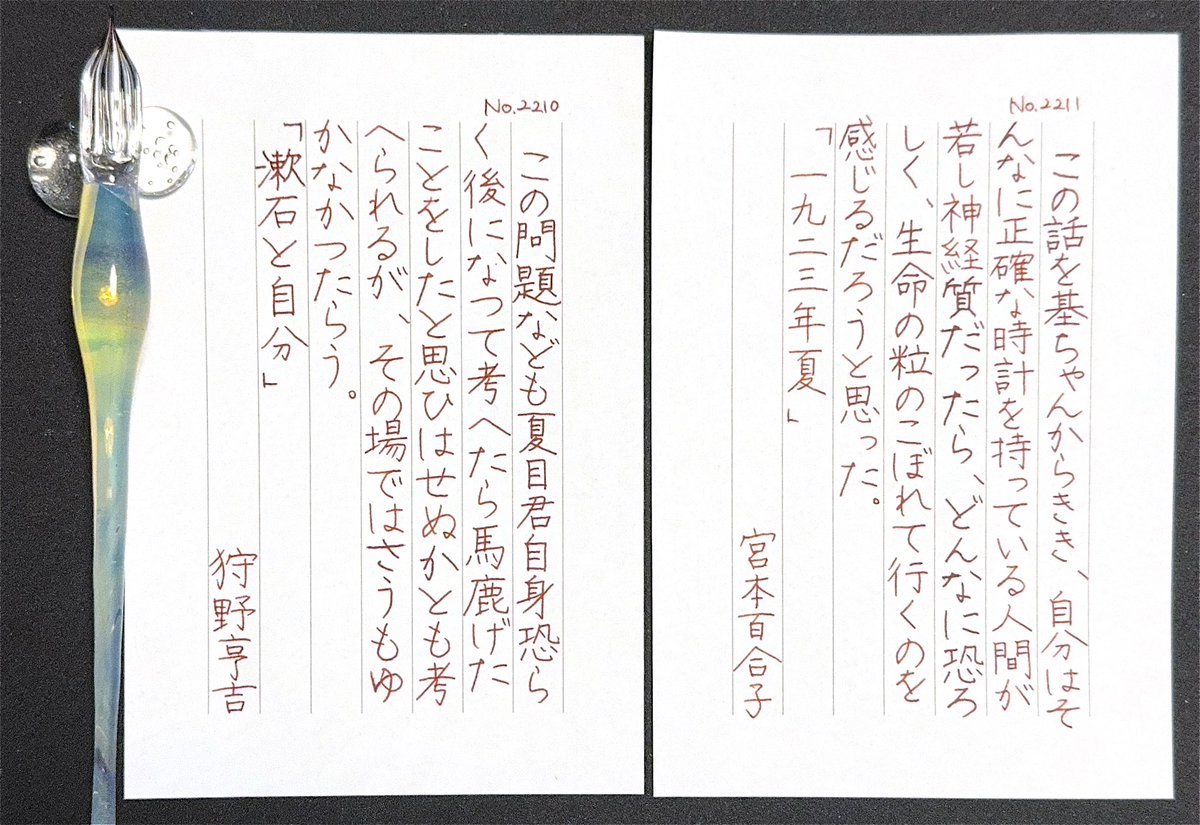 No.2210
この問題なども夏目君自身恐ら
く後になつて考へたら馬鹿げた
ことをしたと思ひはせぬかとも考
へられるが、その場ではさうもゆ
かなかつたらう。
「漱石と自分」
狩野亨吉
No.2211
この話を基ちゃんからきき、自分はそ
んなに正確な時計を持っている人間が
若し神経質だったら、どんなに恐ろ
しく、生命の粒のこぼれて行くのを
感じるだろうと思った。
「一九二三年夏」
宮本百合子